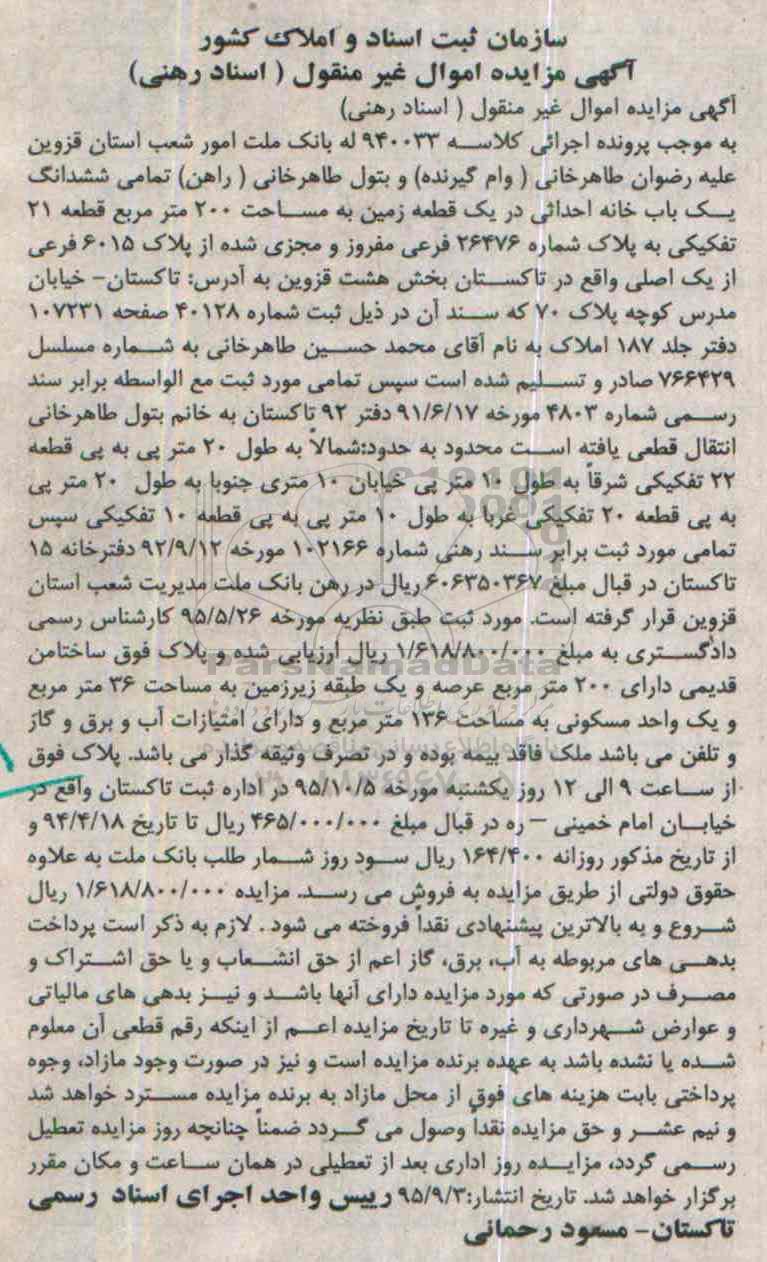 سازمان ثبت اسناد و املاک کشور
آگهی مزایده اموال غیر منقول ( اسناد رهنی)
آگهی مزایده اموال غیر منقول ( اسناد رهنی)
به موجب پرونده اجرائی کلاسه ۹۴۰۰۳۳ له بانک ملت امور شعب استان قزوین
علیه رضوان طاهرخانی ( وام گیرنده) و بتول طاهرخانی ( راهن) تمامی ششدانگ
یک باب خانه احداثی در یک قطعه زمین به مساحت ۲۰۰ متر مربع قطعه ۲۱
تفکیکی به پلاک شماره ۲۶۴۷۶ فرعی مفروز و مجزی شده از پلاک ۶۰۱۵ فرعی
از یک اصلی واقع در تاکستان بخش هشت قزوین به آدرس: تاکستان- خیابان
مدرس کوچه پلاک ۷۰ که سند آن در ذیل ثبت شماره ۴۰۱۲۸ صفحه ۱۰۷۲۳۱
دفتر جلد ۱۸۷ املاک به نام آقای محمد حسین طاهرخانی به شماره مسلسل
۷۶۶۴۲۹ صادر و تسلیم شده است سپس تمامی مورد ثبت مع الواسطه برابر سند
رسمی شماره ۴۸۰۳ مورخه ۹۱/۶/۱۷ دفتر ۹۲ تاکستان به خانم بتول طاهرخانی
انتقال قطعی یافته است محدود به حدود:شمالاً به طول ۲۰ متر پی به پی قطعه
۲۲ تفکیکی شرقاً به طول ۱۰ متر پی خیابان ۱۰ متری جنوبا به طول ۲۰ متر پی
به پی قطعه ۲۰ تفکیکی غربا به طول ۱۰ متر پی به پی قطعه ۱۰ تفکیکی سپس
تمامی مورد ثبت برابر سند رهنی شماره ۱۰۲۱۶۶ مورخه ۹۲/۹/۱۲ دفترخانه ۱۵
تاکستان در قبال مبلغ ۶۰۶۳۵۰۳۶۷ ریال در رهن بانک ملت مدیریت شعب استان
قزوین قرار گرفته است. مورد ثبت طبق نظریه مورخه ۹۵/۵/۲۶ کارشناس رسمی
دادگستری به مبلغ ۱/۶۱۸/۸۰۰/۰۰۰ ریال ارزیابی شده و پلاک فوق ساختامن
قدیمی دارای ۲۰۰ متر مربع عرصه و یک طبقه زیرزمین به مساحت ۳۶ متر مربع
و یک واحد مسکونی به مساحت ۱۳۶ متر مربع و دارای امتیازات آب و برق و گاز
و تلفن می باشد ملک فاقد بیمه بوده و در تصرف وثیقه گذار می باشد. پلاک فوق
از ساعت ۹ الی ۱۲ روز یکشنبه مورخه ۹۵/۱۰/۵ در اداره ثبت تاکستان واقع در
خیابان امام خمینی – ره در قبال مبلغ ۴۶۵/۰۰۰/۰۰۰ ریال تا تاریخ ۹۴/۴/۱۸ و
از تاریخ مذکور روزانه ۱۶۴/۴۰۰ ریال سود روز شمار طلب بانک ملت به علاوه
حقوق دولتی از طریق مزایده به فروش می رسد. مزایده ۱/۶۱۸/۸۰۰/۰۰۰ ریال
شروع و به بالاترین پیشنهادی نقداً فروخته می شود . لازم به ذکر است پرداخت
بدهی های مربوطه به آب، برق، گاز اعم از حق انشعاب و یا حق اشتراک و
مصرف در صورتی که مورد مزایده دارای آنها باشد و نیز بدهی های مالیاتی
و عوارض شهرداری و غیره تا تاریخ مزایده اعم از اینکه رقم قطعی آن معلوم
شده یا نشده باشد به عهده برنده مزایده است و نیز در صورت وجود مازاد، وجوه
پرداختی بابت هزینه های فوق از محل مازاد به برنده مزایده مسترد خواهد شد
و نیم عشر و حق مزایده نقداً وصول می گردد ضمناً چنانچه روز مزایده تعطیل
رسمی گردد، مزایده روز اداری بعد از تعطیلی در همان ساعت و مکان مقرر
برگزار خواهد شد. تاریخ انتشار:۹۵/۹/۳ رییس واحد اجرای اسناد رسمی
تاکستان- مسعود رحمانی
ParsNamadData